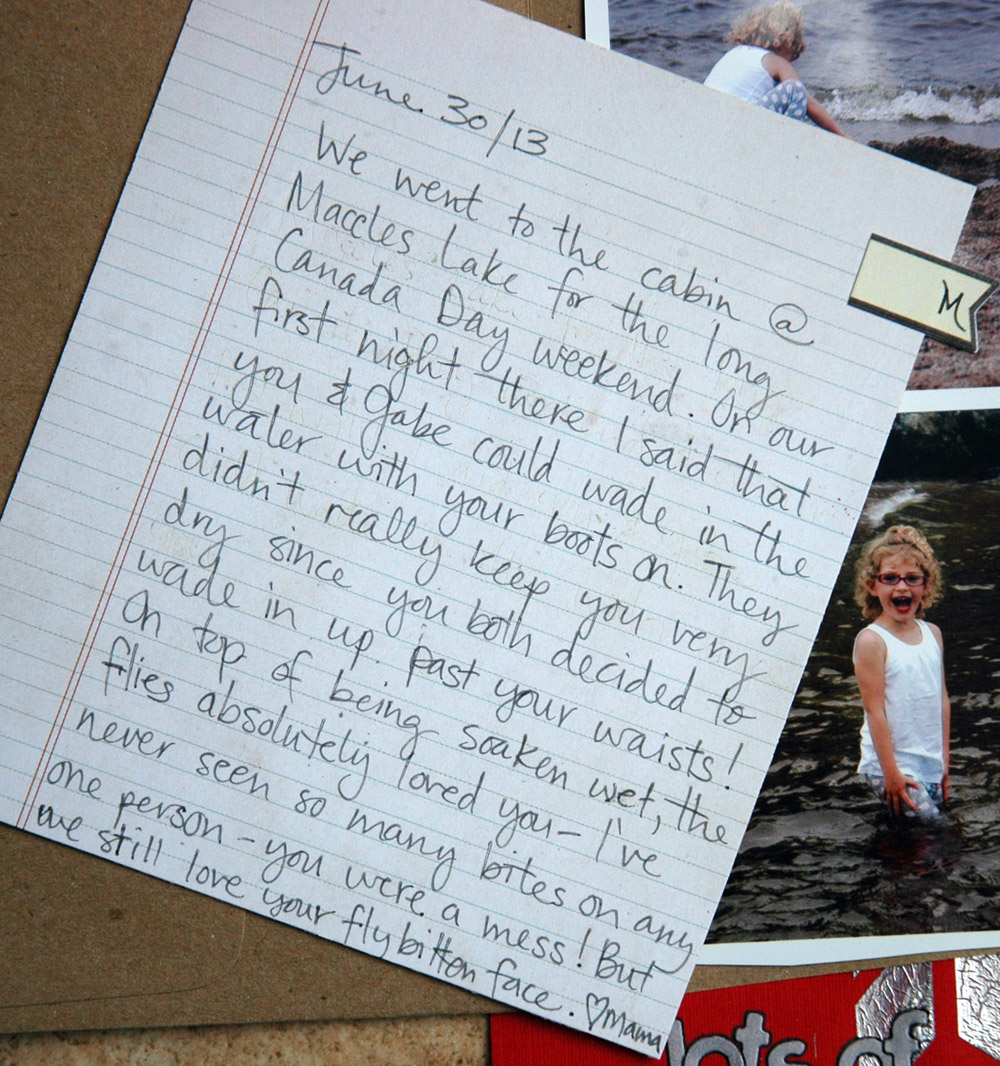 June 30/13
We went to the cabin @
Maccles Lake for the long
Canada Day weekend. On our
first night there I said that
you & Gabe could wade in the
water with your boots on. They
didn't really keep you very
dry since you both decided to
wade in up past your waists!
On top of being soaken wet, the
flies absolutely loved you - I've
never seen so many bites on any
one person - you were a mess! But
we still love your fly bitten face. ♡ Mama
M
lots of